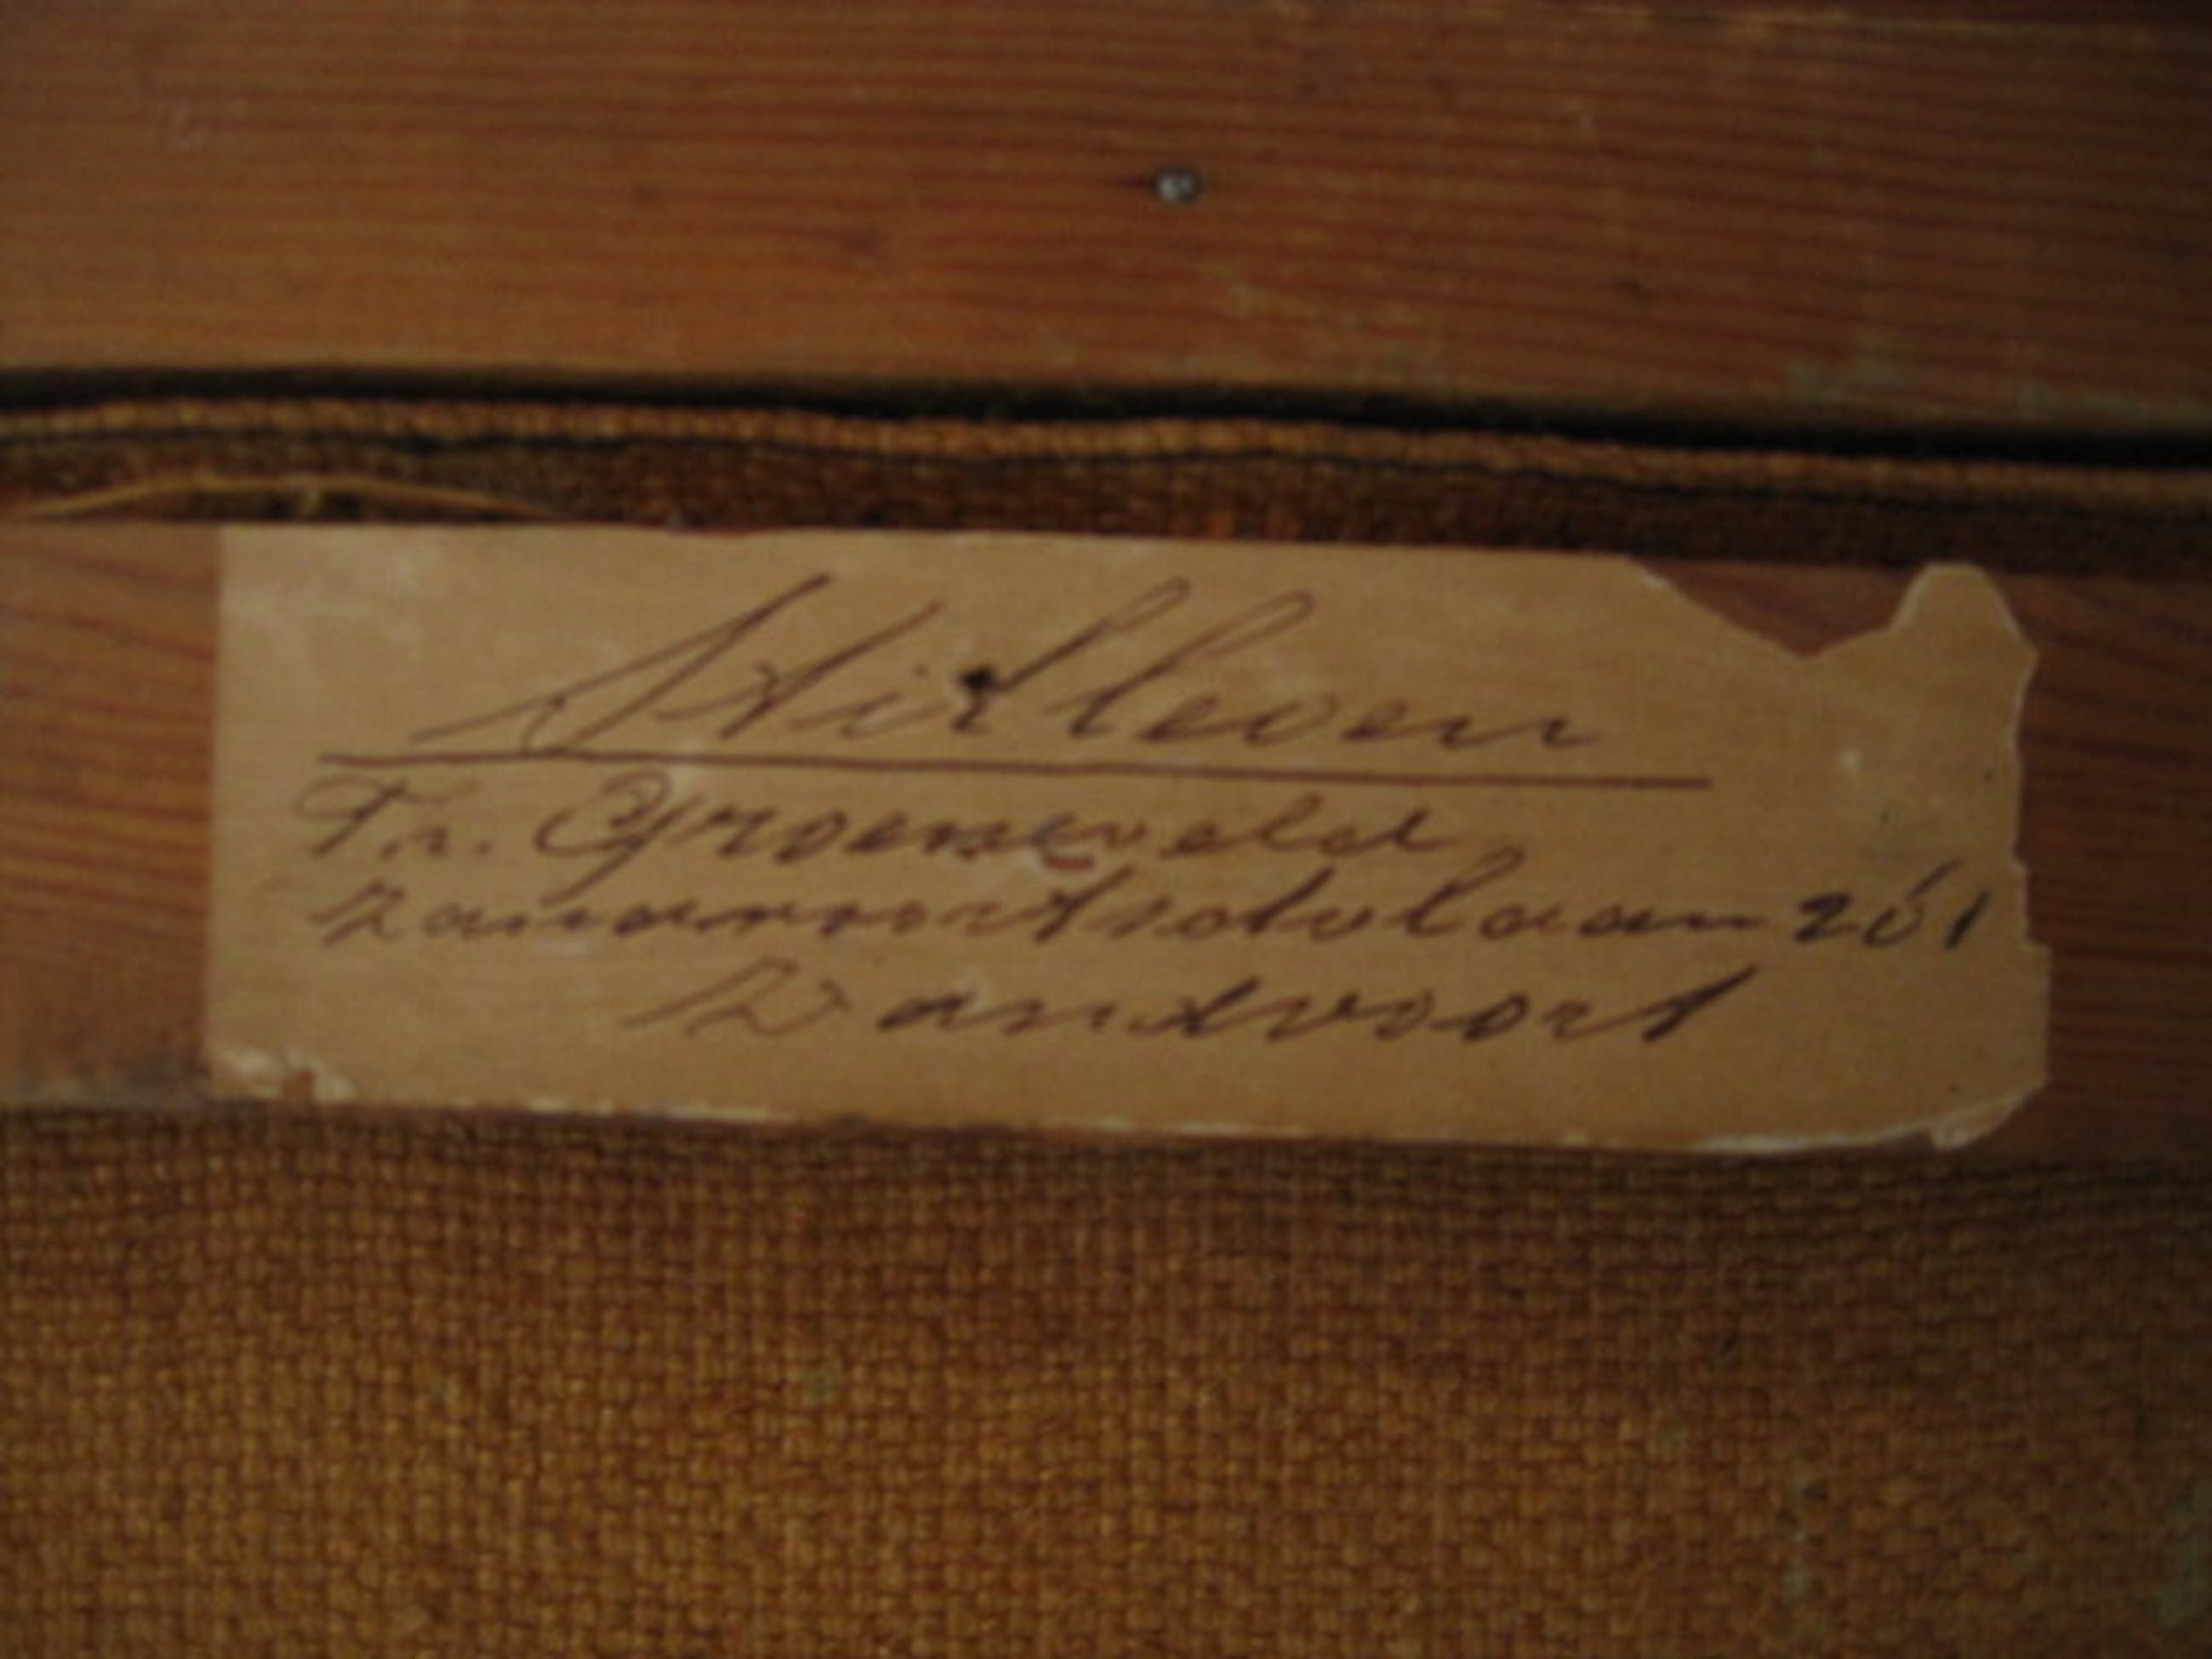 Stilleven
Fr. Groeneveld
Zandvoortschelaan 261
Zandvoort